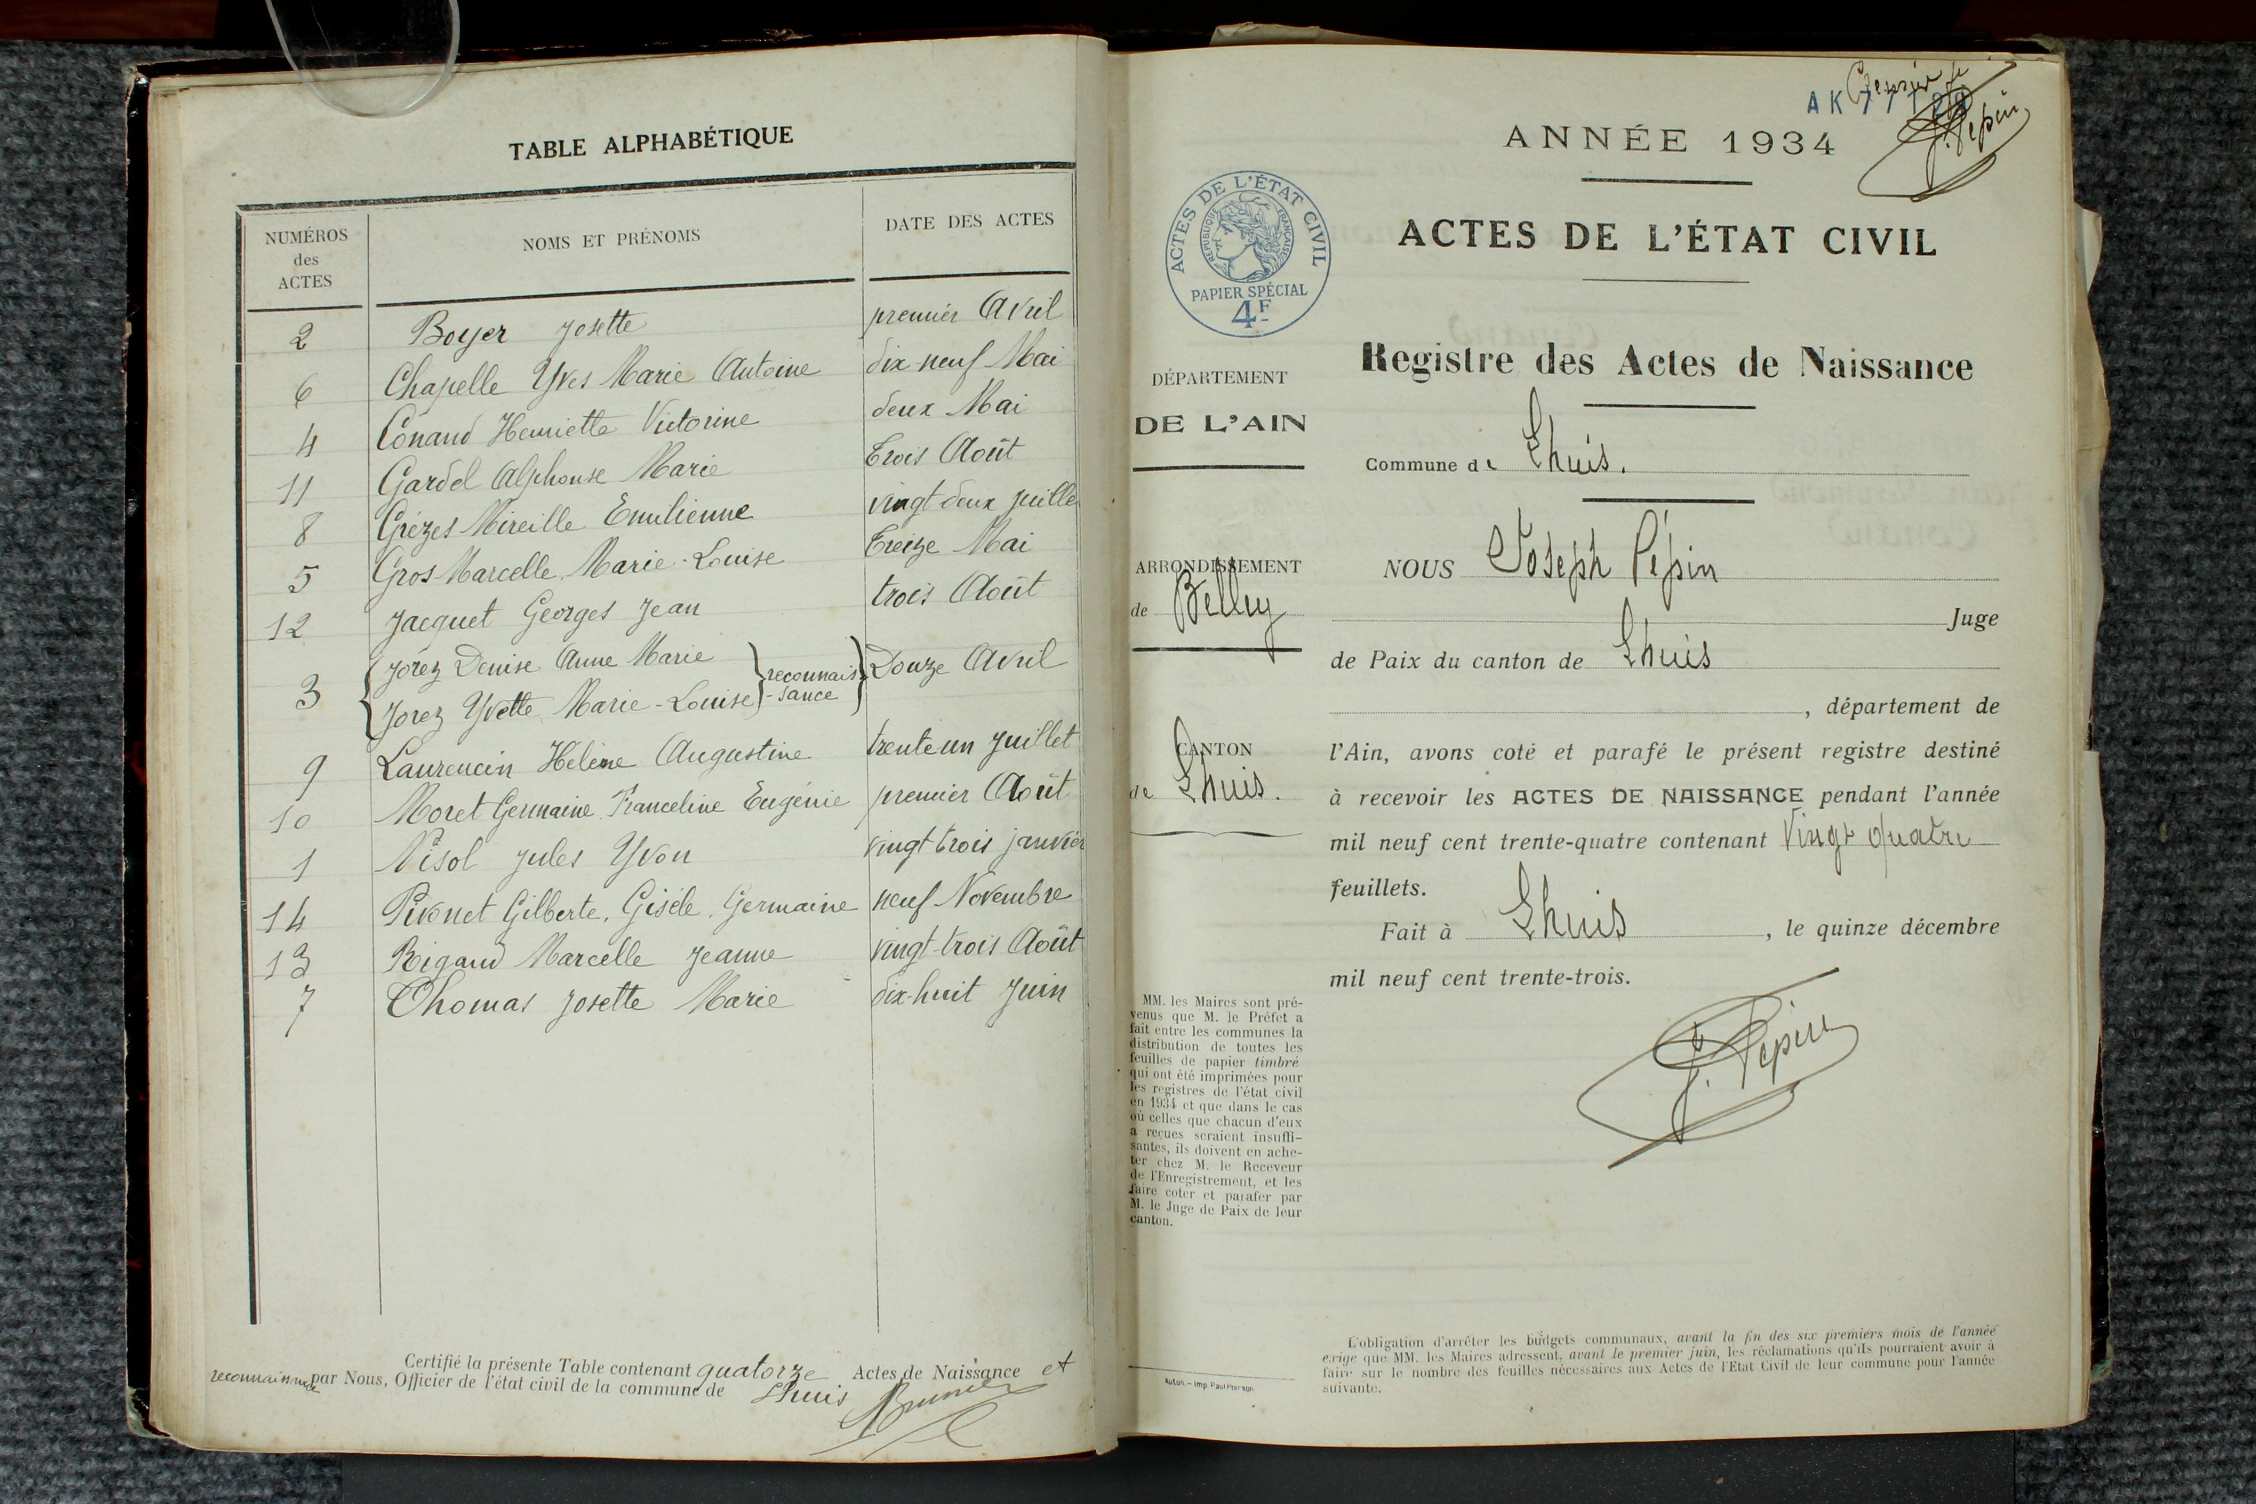 TABLE ALPHABÉTIQUE
NUMÉROS des ACTES
NOMS ET PRÉNOMS
DATE DES ACTES
2 Boyer Josette premier Avril
6 Chapelle Yves Marie Antoine dix neuf Mai
4 Conand Henriette Victorine deux Mai
11 Gardel Alphonse Marie trois Août
8 Grézes Mireille Emilienne vingt deux juille
5 Gros Marcelle Marie-Louise treize Mai
12 Jacquet Georges Jean trois Août
3 { Jorez Denise Anne Marie } reconnais- Douze Avril
Jorez Yvette Marie-Louise } -sance
9 Laurencin Hélène Augustine trente un juillet
10 Moret Germaine Franceline Eugénie premier Août
1 Pisol Jules Yvon vingt trois janvier
14 Pivonet Gilberte, Gisèle, Germaine neuf Novembre
13 Rigaud Marcelle Jeanne vingt-trois Août
7 Thomas Josette Marie dix-huit Juin
Certifié la présente Table contenant quatorze Actes de Naissance et
reconnaissance par Nous, Officier de l'état civil de la commune de Lhuis
J. Pépin
ANNÉE 1934
ACTES DE L'ÉTAT CIVIL
RÉPUBLIQUE FRANÇAISE
PAPIER SPÉCIAL
4F
ACTES DE L'ÉTAT CIVIL
Registre des Actes de Naissance
DÉPARTEMENT
DE L'AIN
ARRONDISSEMENT
de Belley
CANTON
de Lhuis.
MM. les Maires sont pré-
venus que M. le Préfet a
fait entre les communes la
distribution de toutes les
feuilles de papier timbré
qui ont été imprimées pour
les registres de l'état civil
en 1934 et que dans le cas
où celles que chacun d'eux
a reçues seraient insuffi-
santes, ils doivent en ache-
ter chez M. le Receveur
de l'Enregistrement, et les
faire coter et parafer par
M. le Juge de Paix de leur
canton.
Commune de Lhuis.
NOUS Joseph Pépin
Juge
de Paix du canton de Lhuis
, département de
l'Ain, avons coté et parafé le présent registre destiné
à recevoir les ACTES DE NAISSANCE pendant l'année
mil neuf cent trente-quatre contenant Vingt quatre
feuillets.
Fait à Lhuis, le quinze décembre
mil neuf cent trente-trois.
J. Pépin
L'obligation d'arrêter les budgets communaux, avant la fin des six premiers mois de l'année
exige que MM. les Maires adressent, avant le premier juin, les réclamations qu'ils pourraient avoir à
faire sur le nombre des feuilles nécessaires aux Actes de l'Etat Civil de leur commune pour l'année
suivante.